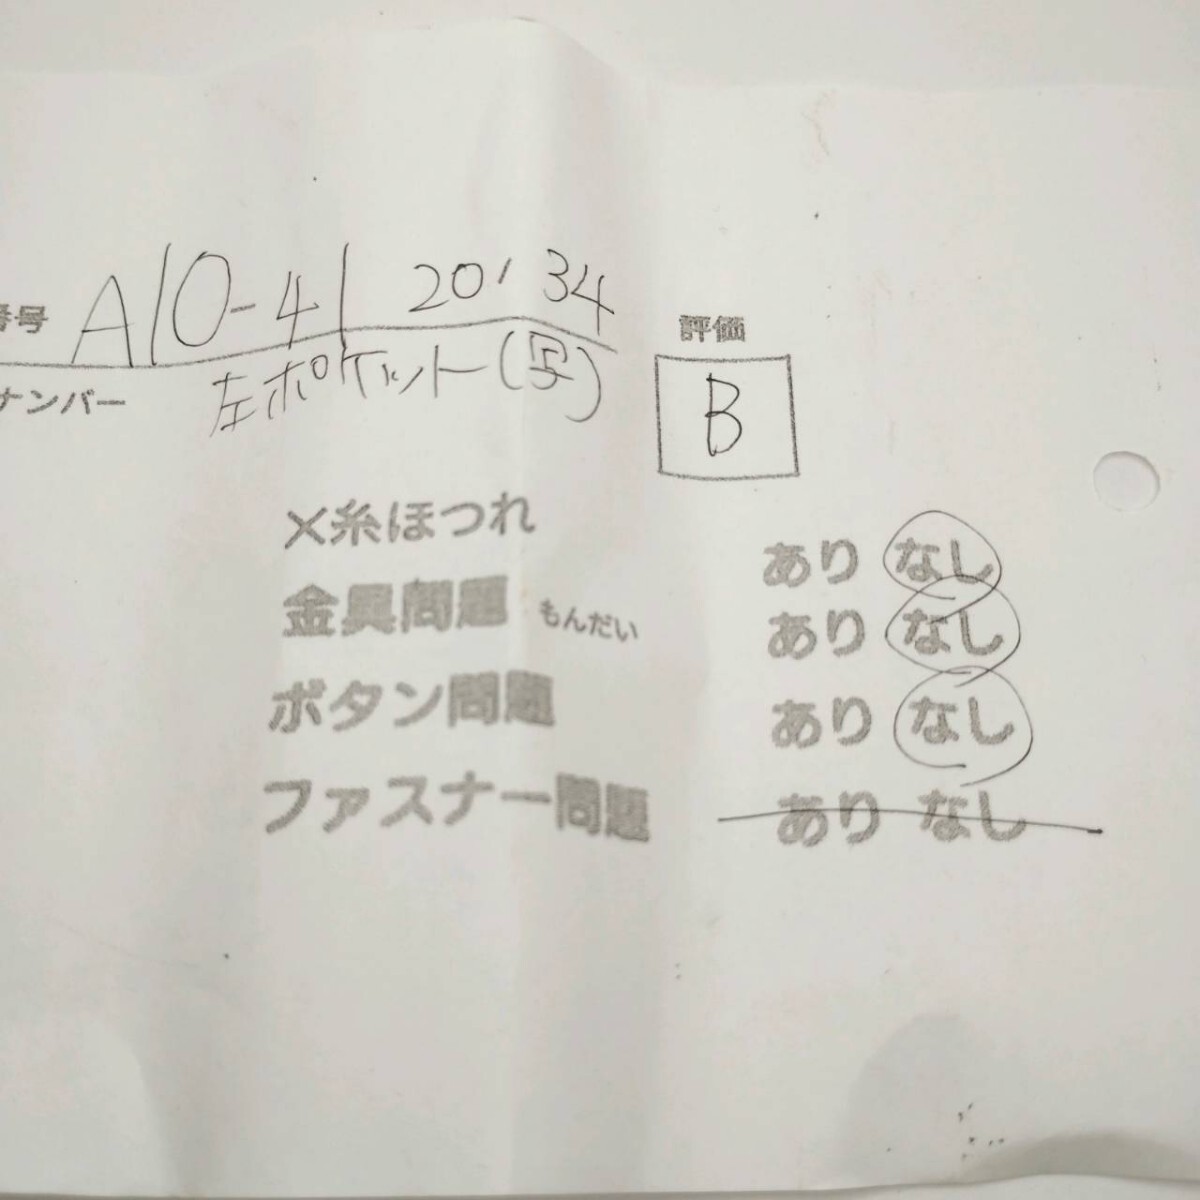 番号 A10-41 20' 34
ナンバー 左ポケット(写)
評価
B
×糸ほつれ あり なし
金具問題 もんだい あり なし
ボタン問題 あり なし
ファスナー問題 あり なし